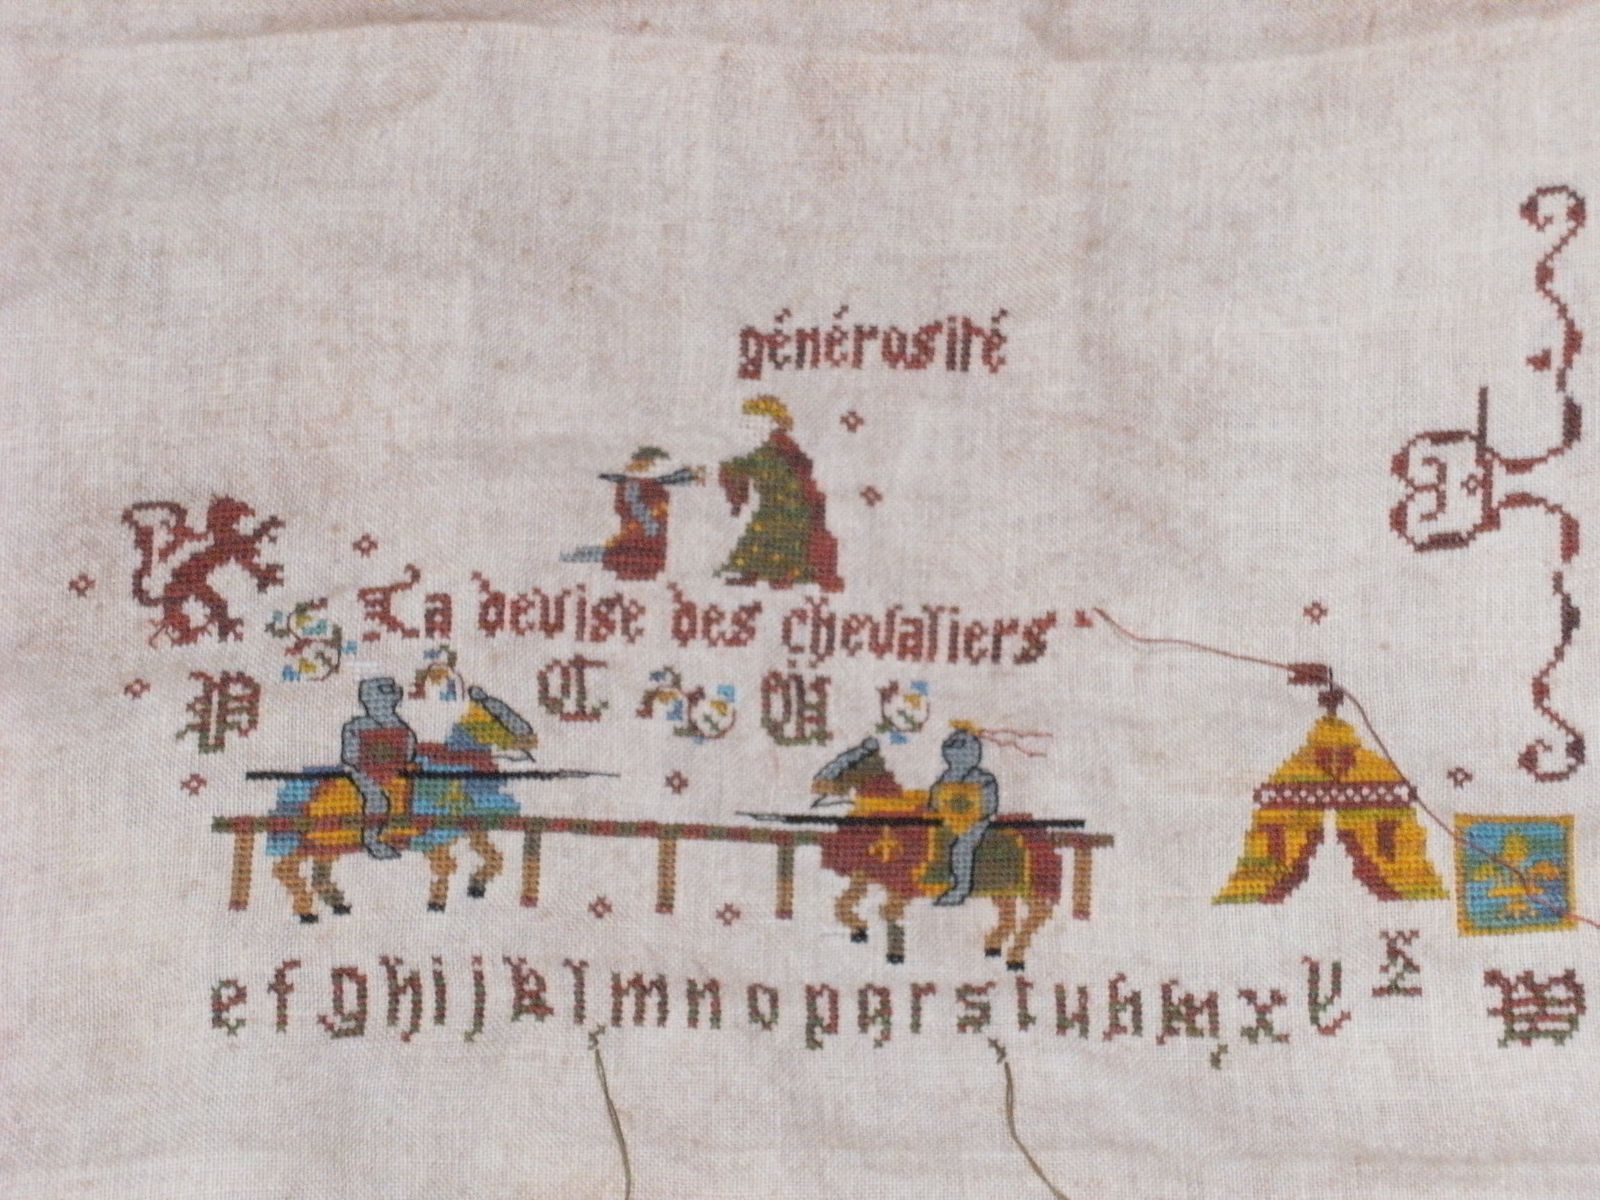 générosité
La devise des chevaliers
P C M
e f g h i j k l m n o p q r s t u v w x y z